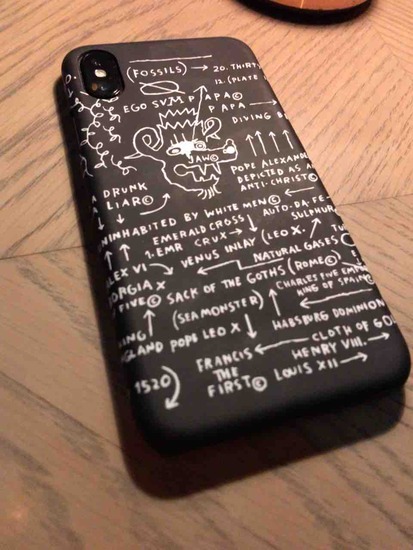 (FOSSILS) → 20. THIRTY
12. (PLATE
EGO SVM PAPA©
PAPA →
DIVING
JAW©
POPE ALEXAND
DEPICTED AS A
ANTI-CHRIST©
A DRUNK
LIAR©
UNINHABITED BY WHITE MEN© ←
EMERALD CROSS AUTO-DA-FE
1. EMR CRUX → SULPHUR
VENUS INLAY (LEO X.
LEX VI → NATURAL GASES
ORGIA X
FIVE© SACK OF THE GOTHS (ROME©)
(SEA MONSTER) CHARLES FIVE EMP
KING OF SPAIN©
KING
GLAND POPE LEO X HABSBURG DOMINION
← CLOTH OF GO
FRANCIS HENRY VIII.
THE
FIRST© LOUIS XII →
1520